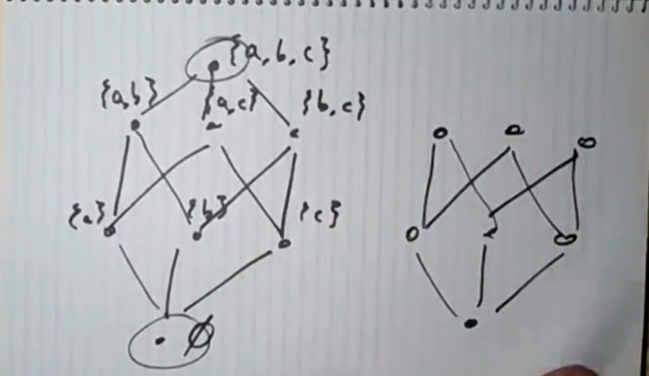 {a, b, c}
{a,b} {a,c} {b,c}
{a} {b} {c}
∅